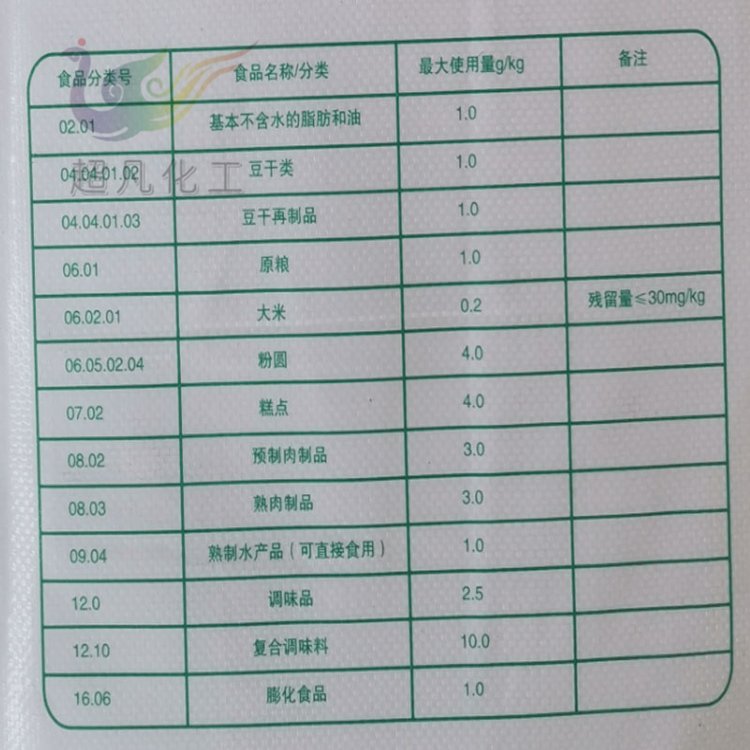 食品分类号 食品名称/分类 最大使用量g/kg 备注
02.01 基本不含水的脂肪和油 1.0
04.04.01.02 豆干类 1.0
超凡化工
04.04.01.03 豆干再制品 1.0
06.01 原粮 1.0
06.02.01 大米 0.2 残留量≤30mg/kg
06.05.02.04 粉圆 4.0
07.02 糕点 4.0
08.02 预制肉制品 3.0
08.03 熟肉制品 3.0
09.04 熟制水产品(可直接食用) 1.0
12.0 调味品 2.5
12.10 复合调味料 10.0
16.06 膨化食品 1.0